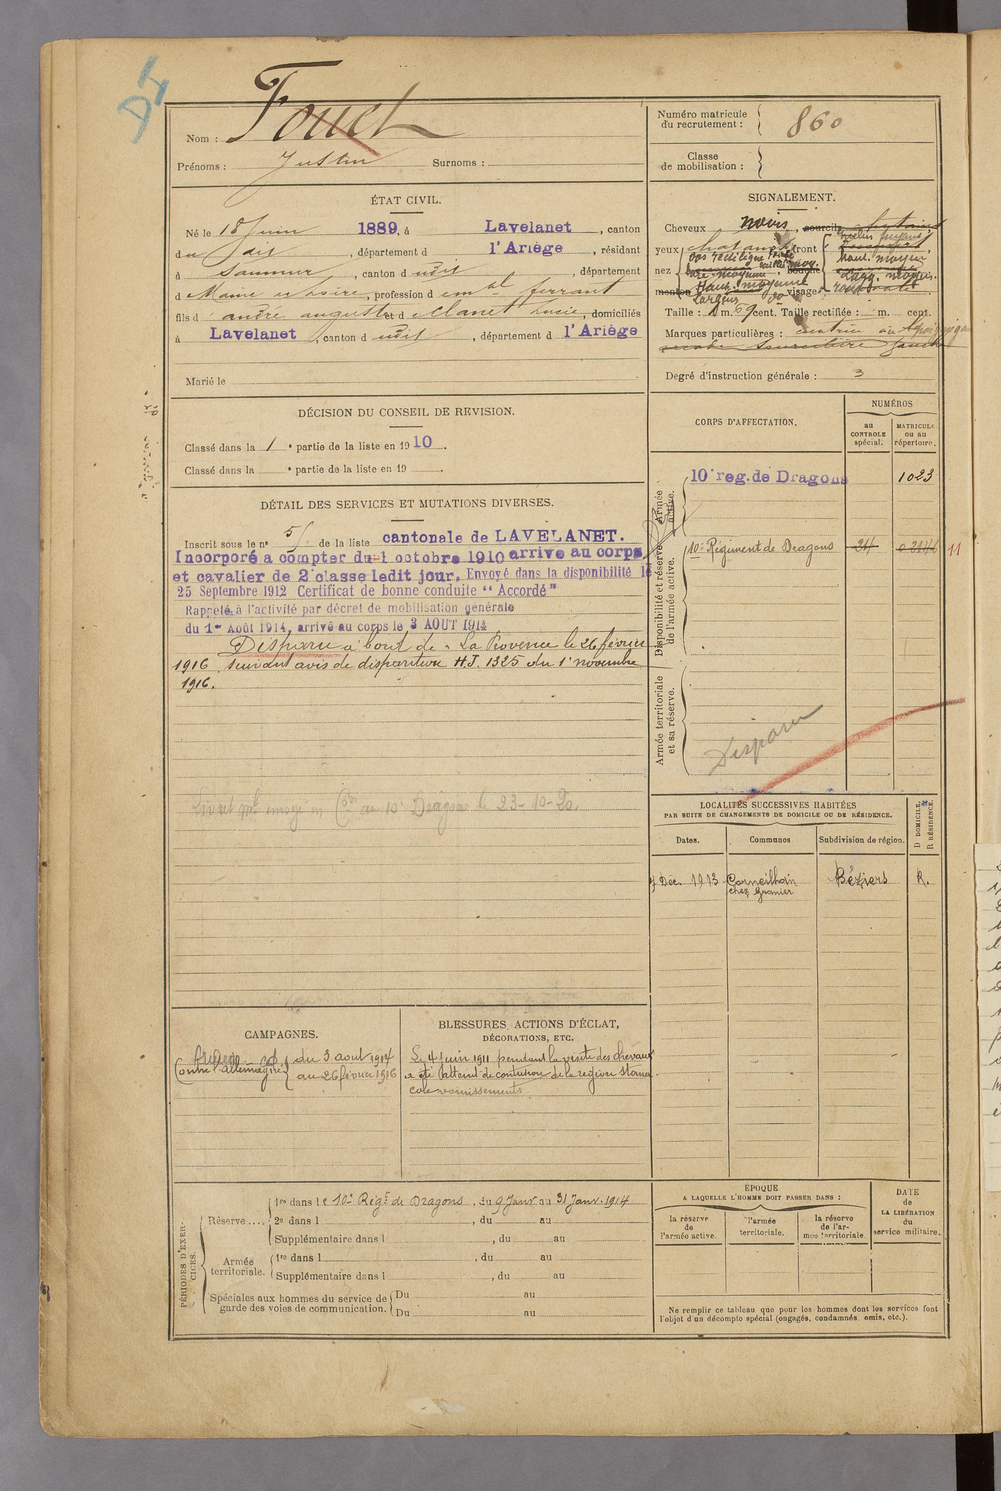 DI
Nom : Fouet
Prénoms : Justin Surnoms :
Numéro matricule du recrutement : 860
Classe de mobilisation :
ÉTAT CIVIL.
Né le 18 Juin 1889, à Lavelanet, canton
du dit, département d l'Ariège, résidant
à Saumur, canton d udit, département
d Maine et Loire, profession d emp ferrant
fils d andré auguste et d Clanet Lucie, domiciliés
à Lavelanet, canton d udit, département d l'Ariège
Marié le
SIGNALEMENT.
Cheveux noirs, sourcils
yeux front
nez bouche
menton visage
Taille : 1 m. 69 cent. Taille rectifiée : m. cent.
Marques particulières :
Degré d'instruction générale : 3
DÉCISION DU CONSEIL DE REVISION.
Classé dans la 1e partie de la liste en 1910.
Classé dans la e partie de la liste en 19 .
DÉTAIL DES SERVICES ET MUTATIONS DIVERSES.
Inscrit sous le n° 51 de la liste cantonale de LAVELANET.
Incorporé a compter du 1 octobre 1910 arrive au corps
et cavalier de 2e classe ledit jour. Envoyé dans la disponibilité le
25 Septembre 1912 Certificat de bonne conduite "Accordé"
Rappelé à l'activité par décret de mobilisation générale
du 1er Août 1914, arrivé au corps le 3 AOUT 1914
Disparu à bord de "La Provence le 26 février
1916 suivant avis de disparition H.J. 1325 du 1er novembre
1916.
Livret envoyé au 10e Dragons le 23-10-20.
CORPS D'AFFECTATION.
NUMÉROS
au CONTROLE spécial.
MATRICULE ou au répertoire.
Armée active.
10e reg. de Dragons 1023
Disponibilité et réserve de l'armée active.
10e Régiment de Dragons 11
Armée territoriale et sa réserve.
Disparu
LOCALITÉS SUCCESSIVES HABITÉES
PAR SUITE DE CHANGEMENTS DE DOMICILE OU DE RÉSIDENCE.
Dates. Communes Subdivision de région. D DOMICILE. R RÉSIDENCE.
7 Déc. 1913 Corneilhan Béziers R.
chez Granier
CAMPAGNES.
Contre Allemagne du 3 aout 1914
au 26 février 1916
BLESSURES, ACTIONS D'ÉCLAT,
DÉCORATIONS, ETC.
Le 4 juin 1911 pendant la visite des chevaux
a été atteint de contusion de la région stoma
cale vomissements
PÉRIODES D'EXERCICES.
Réserve .... 1re dans l e 10e Régt de Dragons, du 9 Janv au 31 Janv. 1914
2e dans l , du au
Supplémentaire dans l , du au
Armée territoriale. 1re dans l , du au
Supplémentaire dans l , du au
Spéciales aux hommes du service de garde des voies de communication. Du au
Du au
ÉPOQUE
A LAQUELLE L'HOMME DOIT PASSER DANS :
la réserve de l'armée active.
l'armée territoriale.
la réserve de l'armée territoriale.
DATE de LA LIBÉRATION du service militaire.
Ne remplir ce tableau que pour les hommes dont les services font
l'objet d'un décompte spécial (engagés, condamnés, omis, etc.).